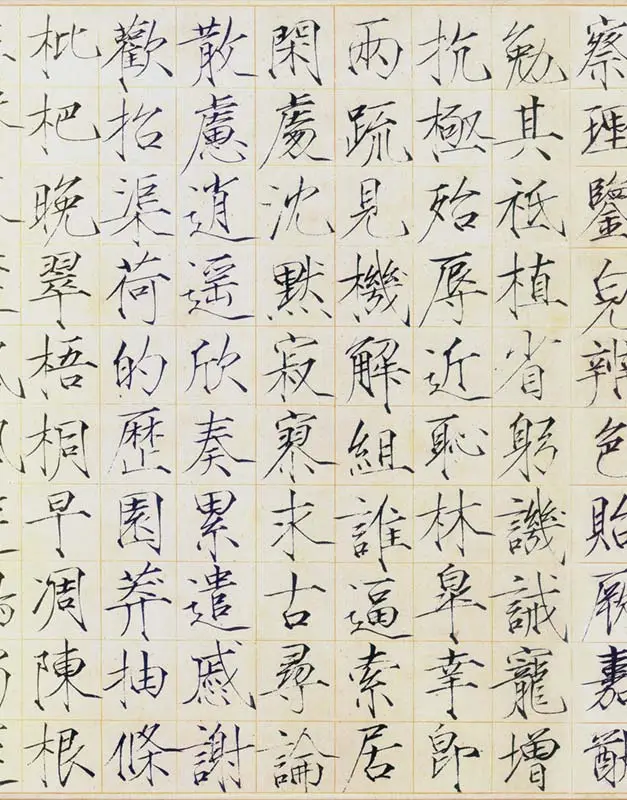 察理鑒皃辨色貽厥嘉猷
勉其祗植省躬譏誡寵增
抗極殆辱近恥林皐幸即
兩疏見機解組誰逼索居
閑處沈默寂寥求古尋論
散慮逍遥欣奏累遣慼謝
歡招渠荷的歷園莽抽條
枇杷晚翠梧桐早凋陳根